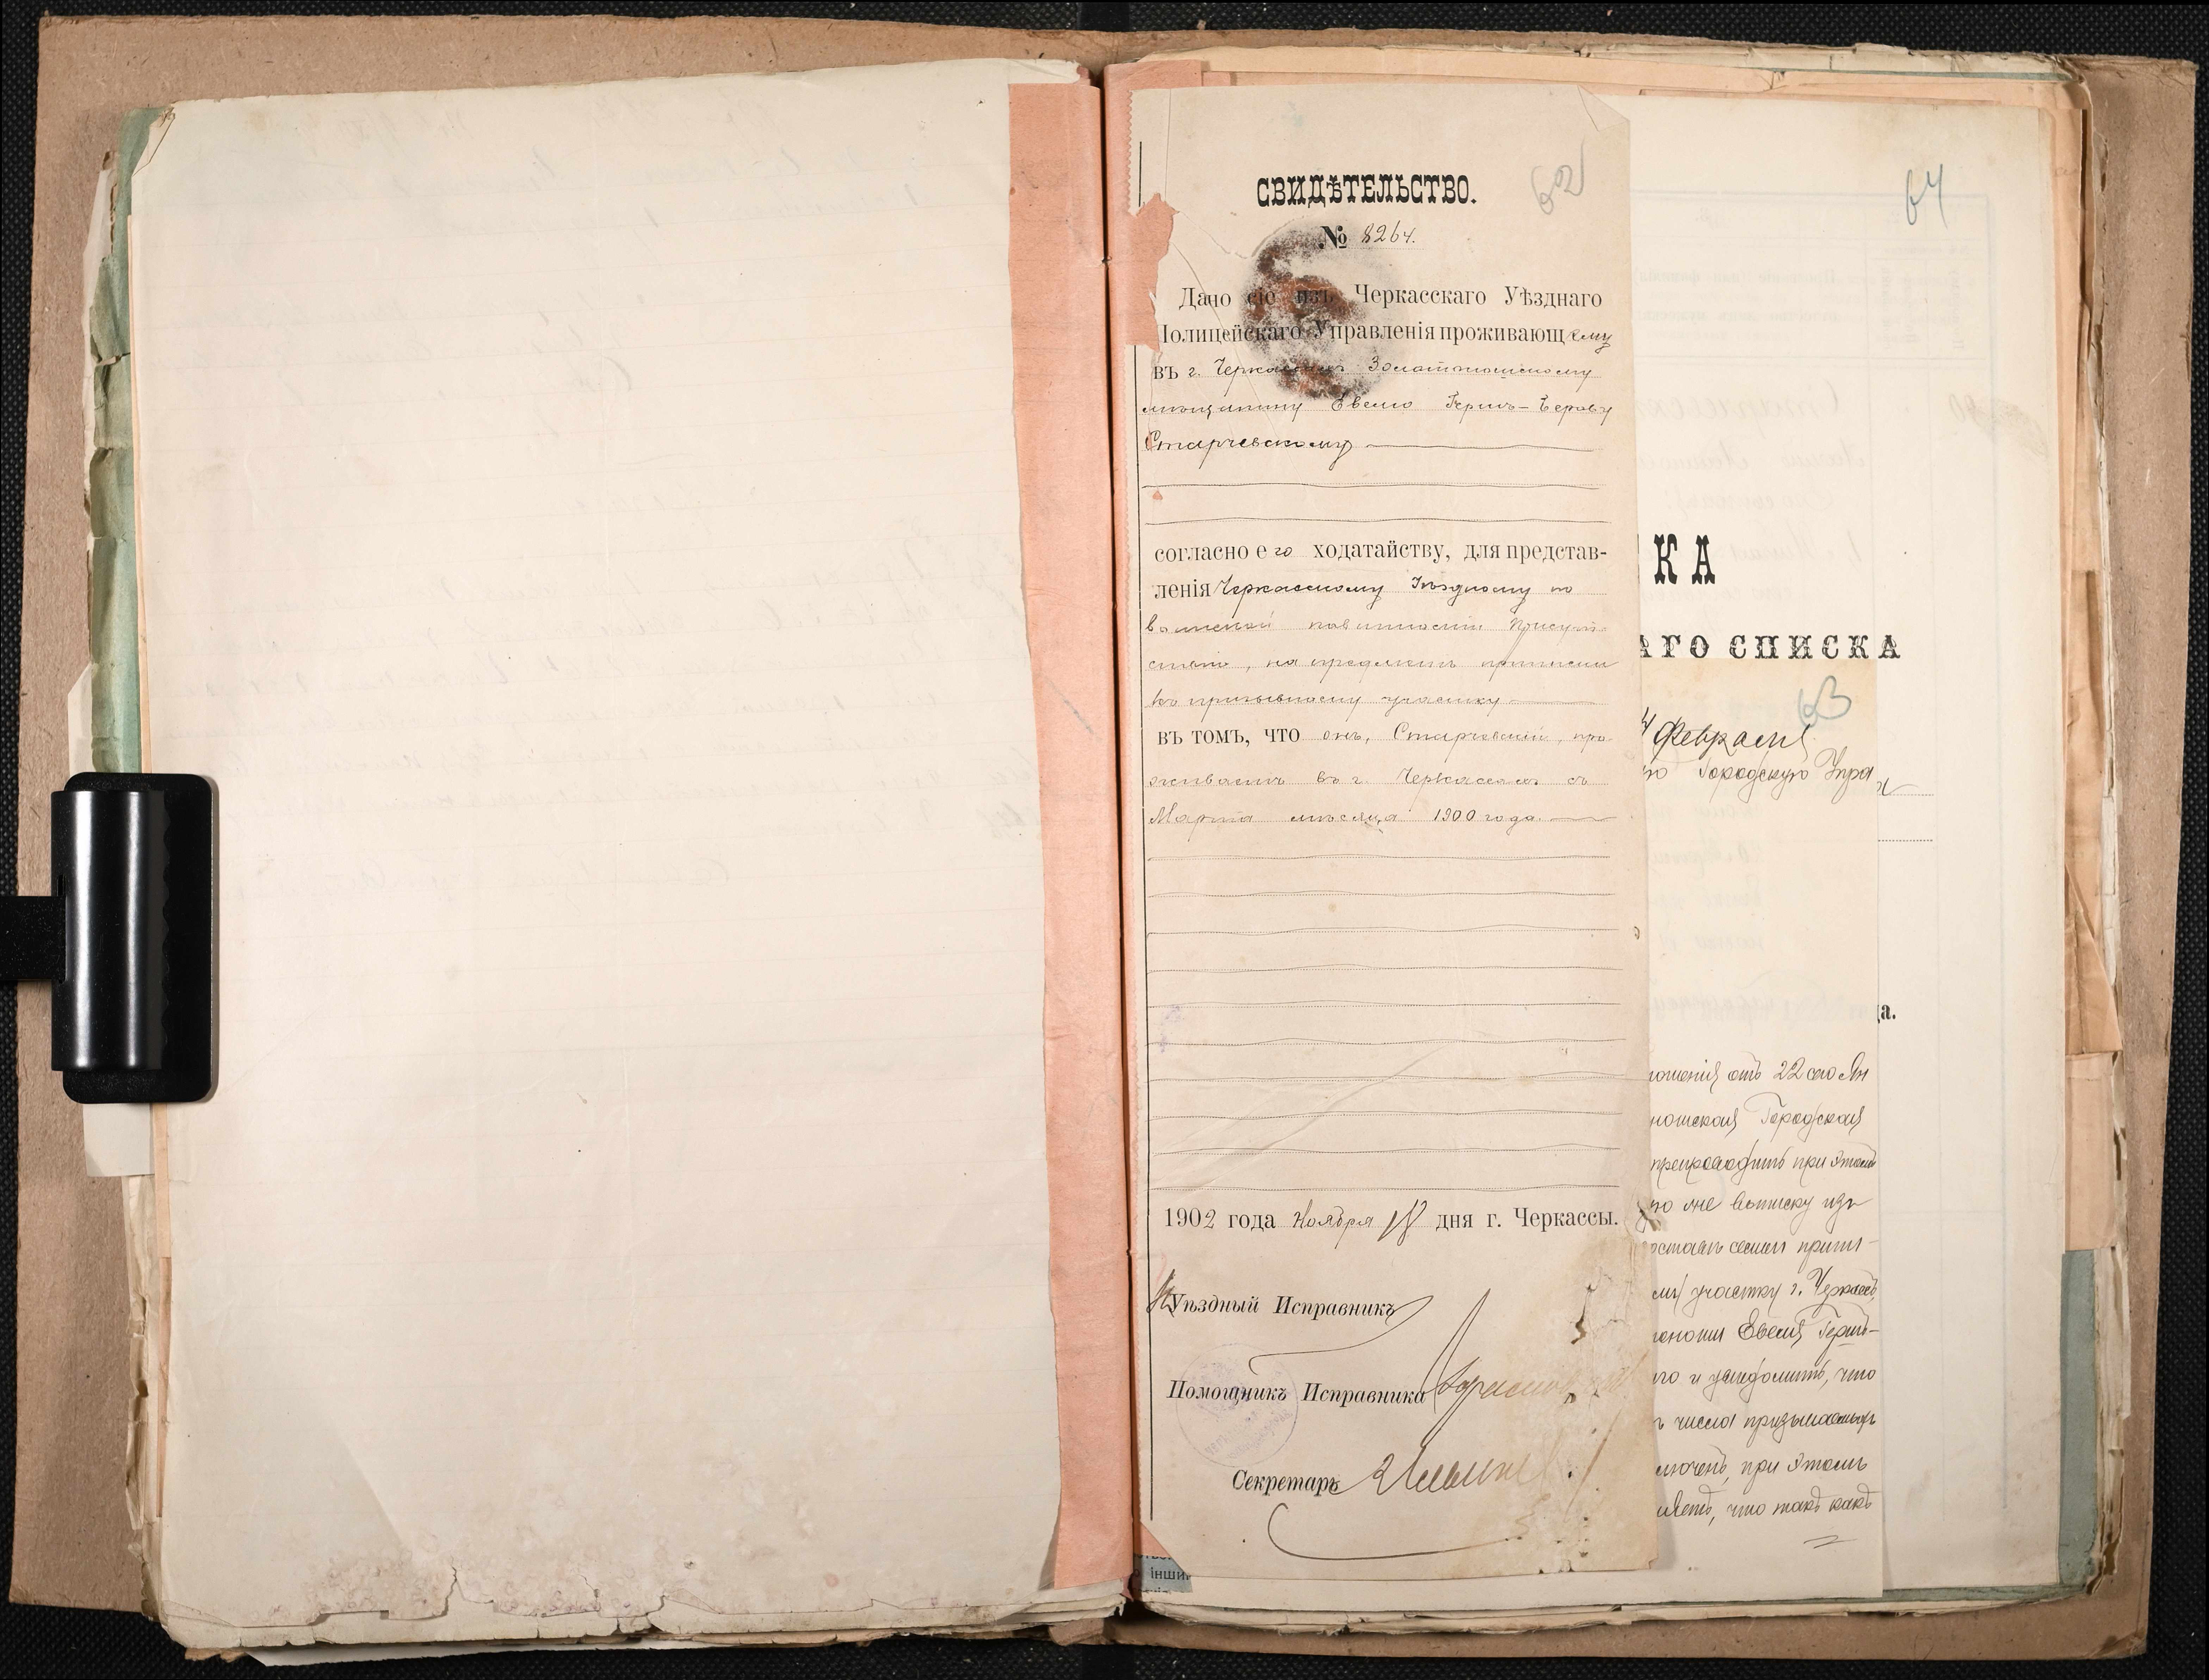 62
СВИДѢТЕЛЬСТВО.
№ 8264.
Дано сіе изъ Черкасскаго Уѣзднаго
Полицейскаго Управленія проживающему
въ г. Черкассахъ Золотоношскому
мѣщанину Евелю Гершъ-Беркову
Старчевскому
согласно его ходатайству, для представ-
ленія Черкасскому Уѣздному по
воинской повинности Присут-
ствію, на предметъ приписки
къ призывному участку
въ томъ, что онъ, Старчевскій, про-
живаетъ въ г. Черкассахъ съ
Марта мѣсяца 1900 года.
1902 года Ноября 18 дня г. Черкассы.
Уѣздный Исправникъ
Помощникъ Исправника
Секретарь
64
КА
АГО СПИСКА
63
Февраля
Городскую Упра
а.
ношенія отъ 22 сего Ян
ношская Городская
препроводить при этомъ
выписку изъ
составѣ семьи припи-
участку г. Черкассъ,
Евеля Гершъ-
го и увѣдомить, что
числа призываемыхъ
ключенъ, при этомъ
что такъ какъ
інши